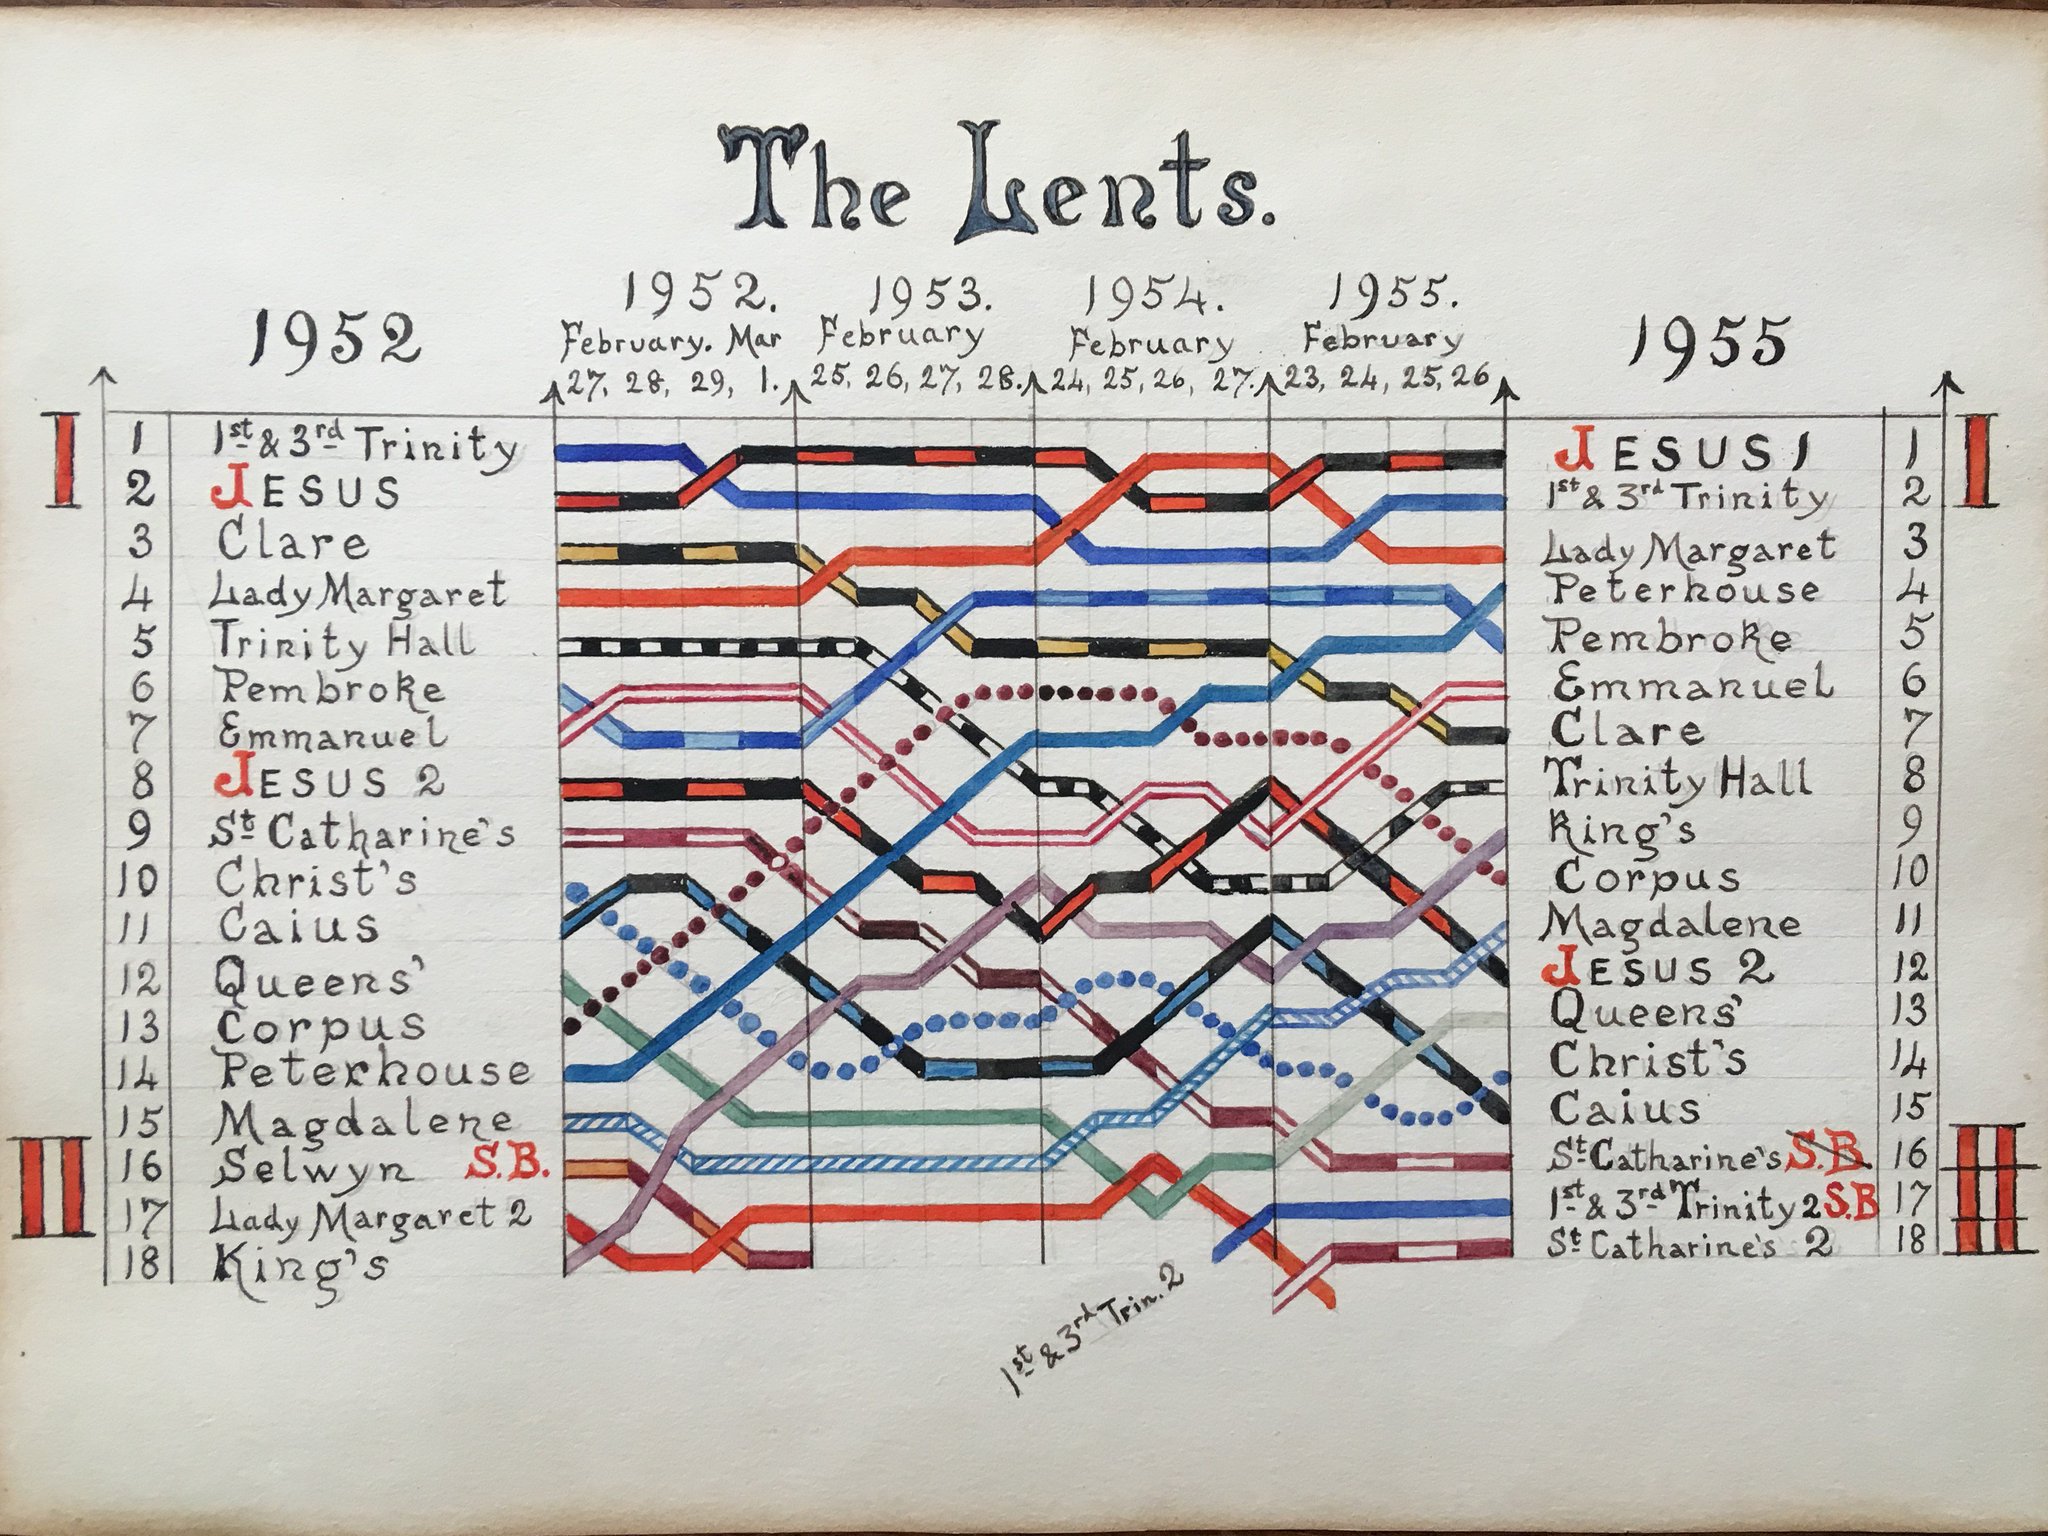 The Lents.
1952
1952.
February. Mar
27, 28, 29, 1.
1953.
February
25, 26, 27, 28.
1954.
February
24, 25, 26, 27.
1955.
February
23, 24, 25, 26
1955
I
1 1st & 3rd Trinity
2 JESUS
3 Clare
4 Lady Margaret
5 Trinity Hall
6 Pembroke
7 Emmanuel
8 JESUS 2
9 St Catharine's
10 Christ's
11 Caius
12 Queens'
13 Corpus
14 Peterhouse
15 Magdalene
II
16 Selwyn S.B.
17 Lady Margaret 2
18 King's
1st & 3rd Trin. 2
JESUS 1 1
I
1st & 3rd Trinity 2
Lady Margaret 3
Peterhouse 4
Pembroke 5
Emmanuel 6
Clare 7
Trinity Hall 8
King's 9
Corpus 10
Magdalene 11
JESUS 2 12
Queens' 13
Christ's 14
Caius 15
St Catharine's S.B. 16
II
1st & 3rd Trinity 2 S.B 17
St Catharine's 2 18